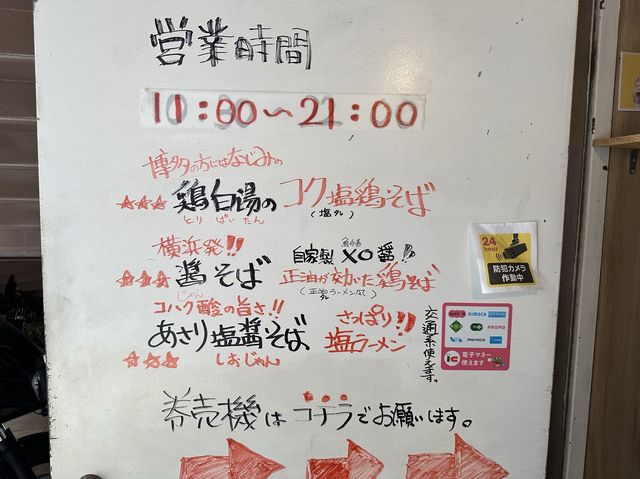 営業時間
11:00〜21:00
博多の方にはなじみの
☆☆☆ 鶏白湯の コク塩鶏そば
とり ぱいたん (塩ダレ)
横浜発!! 自家製 XO醤!!
☆☆☆ 醤そば 正油が効いた鶏そば
じゃん
コハク酸の旨さ!! さっぱり!!
あさり塩醤そば、 塩ラーメン
☆☆☆ しおじゃん
交通系使えます。
券売機はコチラでお願います。
24 hour
防犯カメラ
作動中
nimoca
PASMO
manaca
電子マネー
使えます